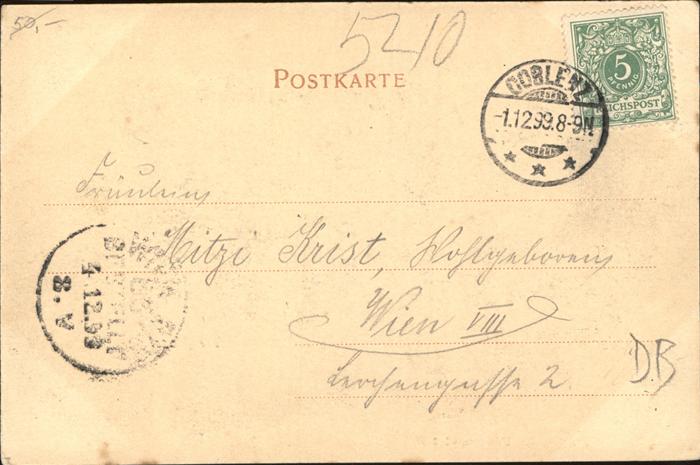 50,-
5210
POSTKARTE
5
PFENNIG
REICHSPOST
COBLENZ
-1.12.99.8-9N
Fräulein
Mitzi Krist, Wohlgeboren
Wien VIII
Lerchengasse 2.
4.12.99
8.V
BESTELLT
DB